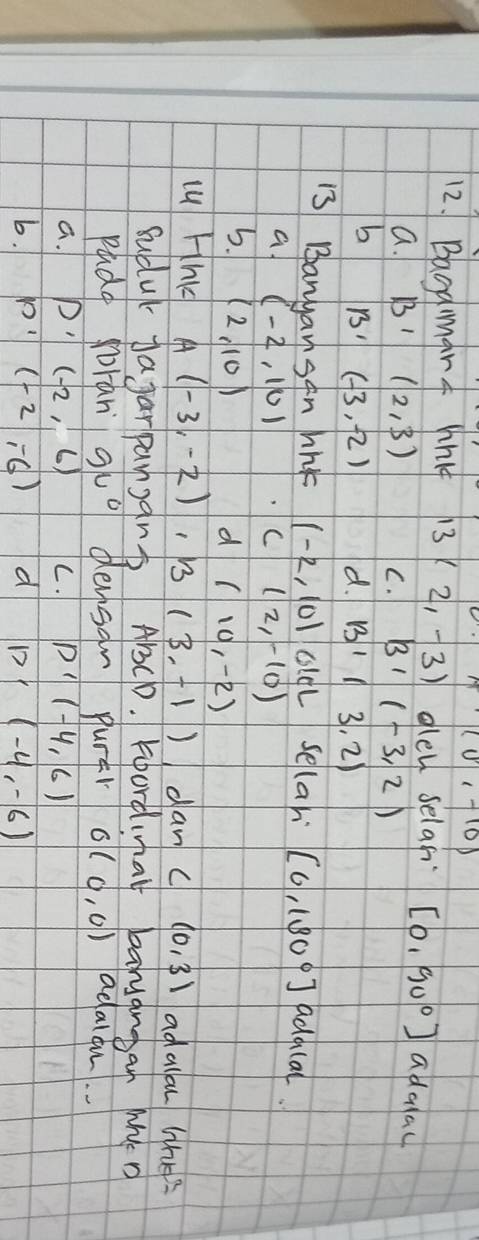 (0, -10)
12. Bagaimana hhk B (2, -3) oleh selah [0, 90°] adalah
a. B' (2,3) c. B' (-3,2)
b B' (-3,-2) d. B' (3,2)
13 Banyangan hhk (-2, 10) oleh selah [0, 180°] adalah.
a. (-2, 10) c (2, -10)
b. (2, 10) d (10, -2)
14 Hhk A (-3, -2), B (3, -1), dan C (0,3) adalah hhk²
sudut jajarpangang ABCD. koordinat banyangan hhk D
pada rotasi 90° dengan pusat O(0,0) adalah...
a. D' (-2, 6) c. D' (-4, 6)
b. D' (-2, -6) d D' (-4, -6)